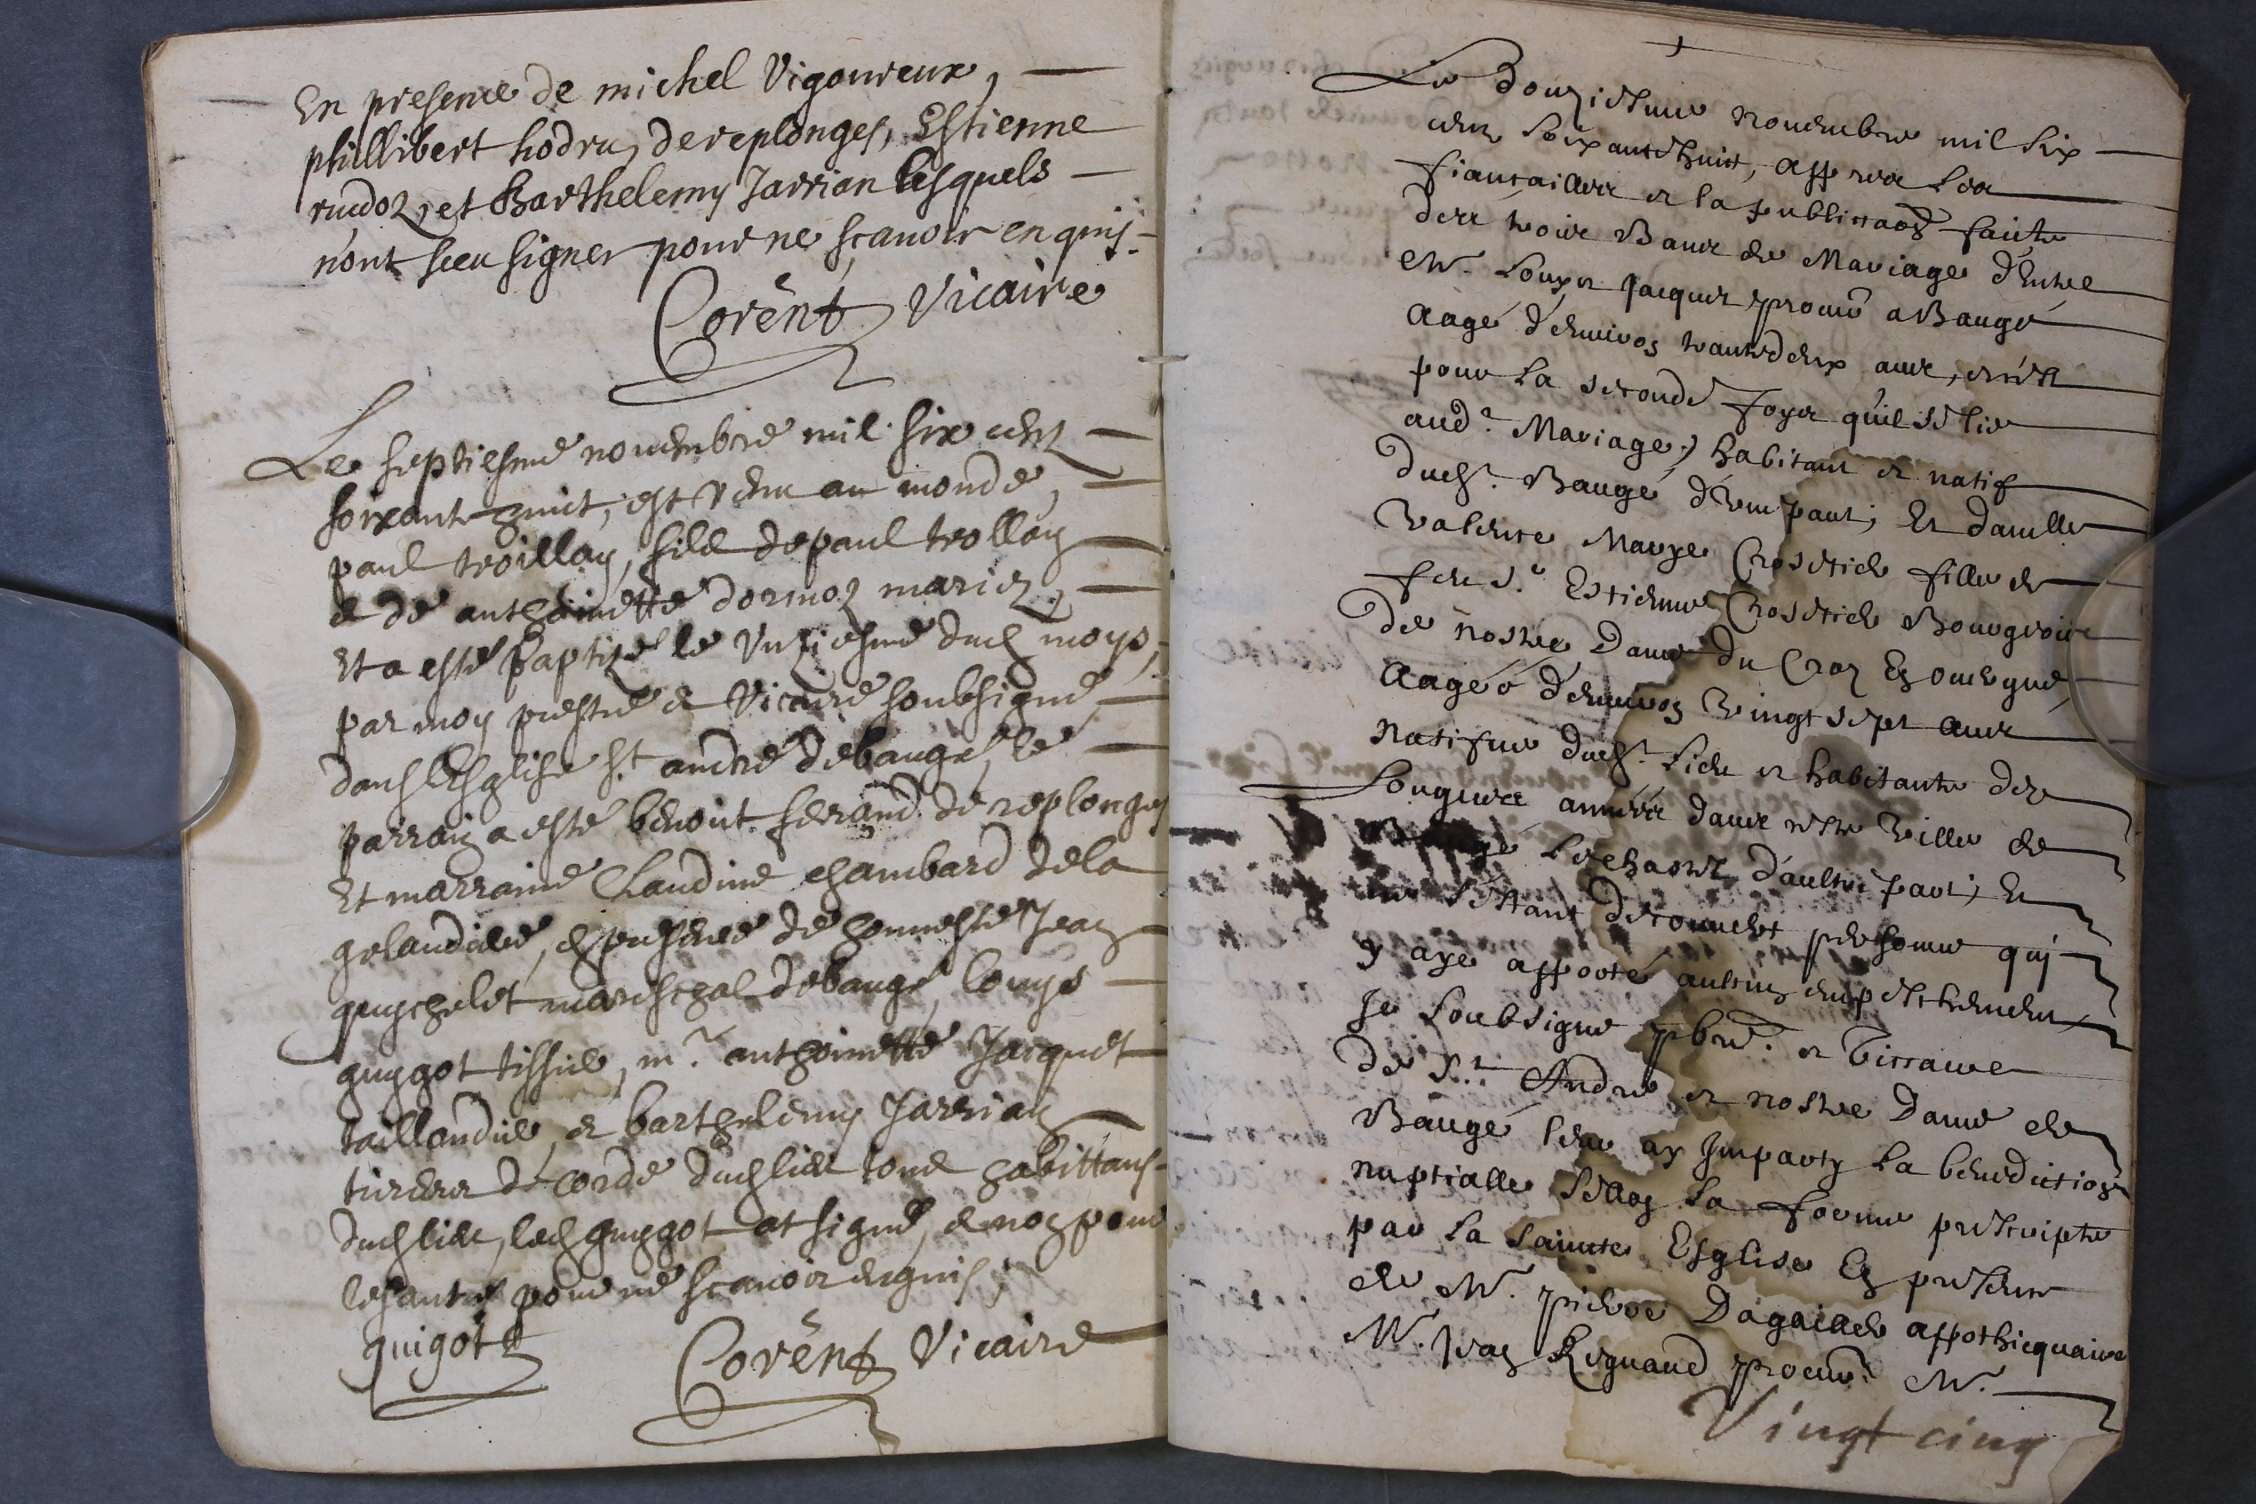 En presence de michel Vigoureux,
phillibert hodru, de replonges, Estienne
rudoz, et Barthelemy Jarrian lesquels
n'ont sceu signer pour ne sçavoir enquis.
Corent Vicaire
Le septiesme novembre mil six cent
soixante huict, est venu au monde,
paul troillay, filz de paul trollay
et de anthoinette dormoz mariez,
Et a esté baptizé le unziesme dud moys,
par moy prestre et vicaire soubsigné
dans l'esglise st andré de baugé, le
parrain a esté benoit ferrand de replonges
Et marraine Claudine chambard de la
, en presence de honneste Jean
guychelet mareschal de baugé, louys
guygot tissier, mr anthoinette Jacquet
taillandier, et barthelemy Jarrian
tireur de corde dud lieu tous habittans
dud lieu, led guygot at signé, et non pour
les autres pour ne scavoir enquis,
guigot
Corent Vicaire
Le Douziesme novembre mil six
cent soixante huict, apres les
fiancailles et la publicaon faicte
des trois Bans de Mariage d'Entre
Mr. Louys Jacquet procur a Baugé
aagé d'environ trante deux ans, et c'est
pour la seconde foys qu'il se lie
aud. Mariage, habitant et natif
dud. Baugé d'une part; Et damlle
valence Marye Crosetier fille de
feu Sr Estienne Crosetier Bourgeois
de nostre Dame du Croz En auvergne,
aagée d'environ vingt sept ans
natifve dud. Lieu et habitante des
Longues années dans ceste ville de
Baugé le chastel d'aultre part; Et
ne s'estant descouvert personne qui
y aye apporté aultun empeschement,
Je soubsigné pbre. et vicaire
de St. Andre et nostre Dame de
Baugé leur ay Imparty la benediction
nuptialle sellon la forme prescripte
par la Saincte Esglise En presence
de Mr. pierre Dagaillier appothicquaire
Mr. Jean Regnaud procur. Mr.
Vingt cinq